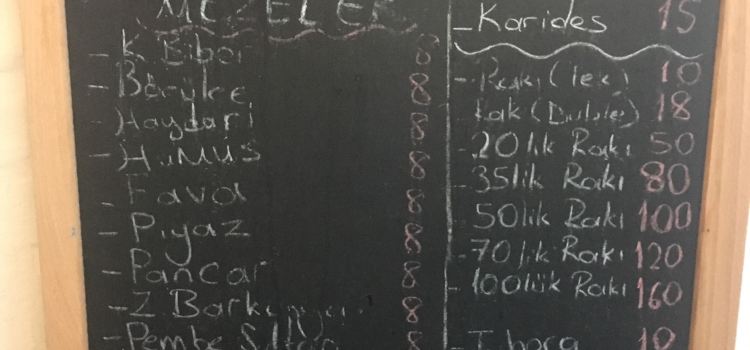 MEZELER
- K. Biber 8
- Börülce 8
- Haydari 8
- Humus 8
- Fava 8
- Piyaz 8
- Pancar 8
- Z. Barbunya 8
- Pembe Sultan 8
- Karides 15
- Rakı (tek) 10
- Rak (Duble) 18
- 20lik Rakı 50
- 35lik Rakı 80
- 50lik Rakı 100
- 70lik Rakı 120
- 100lük Rakı 160
- T. bora 10